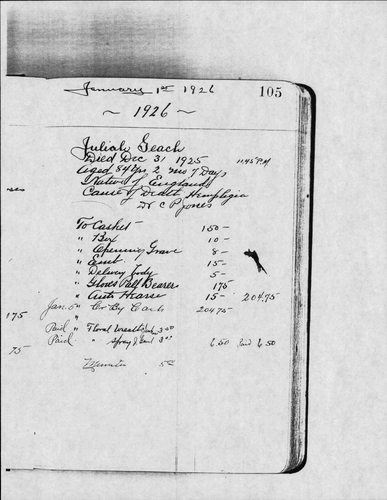 January 1st 1926
105
~ 1926 ~
Juliah Geach
Died Dec 31 1925 11:45 P.M
Aged 84 Yrs 2 mo 7 Days
Native of England
Cause of Death Hemplegia
Dr C P Jones
To Casket 150 -
" Box 10 -
" Opening Grave 8 -
" Emb 15 -
" Delivery body 5 -
" Gloves Pall Bearers 175
" Auto Hearse 15 - 204.75
Jan. 5 " Cr By Cash 204.75
175
Paid " Floral Wreath 3.50
Paid " Spray 3.00 6.50 Paid 6.50
75
Minister 5.00